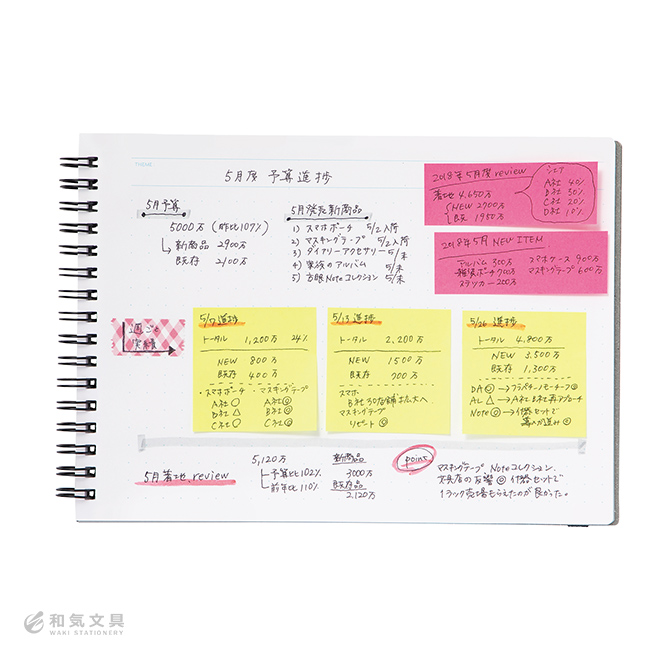 THEME
5月度 予算進捗
5月予算
5000万 (昨比107%)
新商品 2900万
既存 2100万
5月発売新商品
1) スマホポーチ 5/2入荷
2) マスキングテープ 5/2入荷
3) ダイアリーアクセサリー 5/末
4) 背後のアルバム 5/末
5) 方眼Noteコレクション 5/末
2018年5月度review
着地 4.650万
NEW 2700万
既 1950万
シェア
A社 40%
B社 30%
C社 20%
D社 10%
2018年5月 NEW ITEM
アルバム 300万
雑貨ポーチ 700万
ステッカー 200万
スマホケース 900万
マスキングテープ 600万
週ごと
実績
5/7進捗
トータル 1,200万 24%
NEW 800万
既存 400万
・スマホポーチ ・マスキングテープ
A社○ A社◎
B社△ B社◎
C社○ C社◎
5/13進捗
トータル 2,200万
NEW 1500万
既存 700万
スマホ
B社 30店舗拡大へ
マスキングテープ
リピート◎
5/26 進捗
トータル 4,800万
NEW 3,500万
既存 1,300万
DA◎→フラバナーノモチーフ◎
AL△→A社 B社再アプローチ
Note◎→什器セットで
導入が進み◎
5月着地.review
5,120万
予算比102%
前年比110%
新商品
3000万
既存品
2,120万
point
マスキングテープ、Noteコレクション
文具店の反響◎ 什器セットで
1ラック売場もらえたのが良かった。
和気文具
WAKI STATIONERY